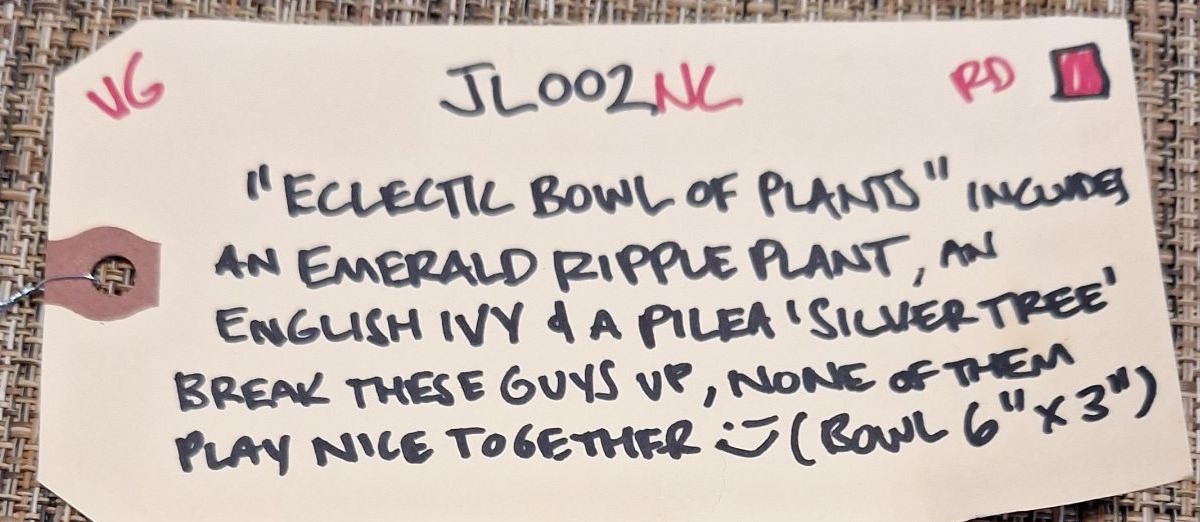 VG JL002NC RD
"ECLECTIC BOWL OF PLANTS" INCLUDES
AN EMERALD RIPPLE PLANT, AN
ENGLISH IVY & A PILEA 'SILVER TREE'
BREAK THESE GUYS UP, NONE OF THEM
PLAY NICE TOGETHER :) (BOWL 6" X 3")